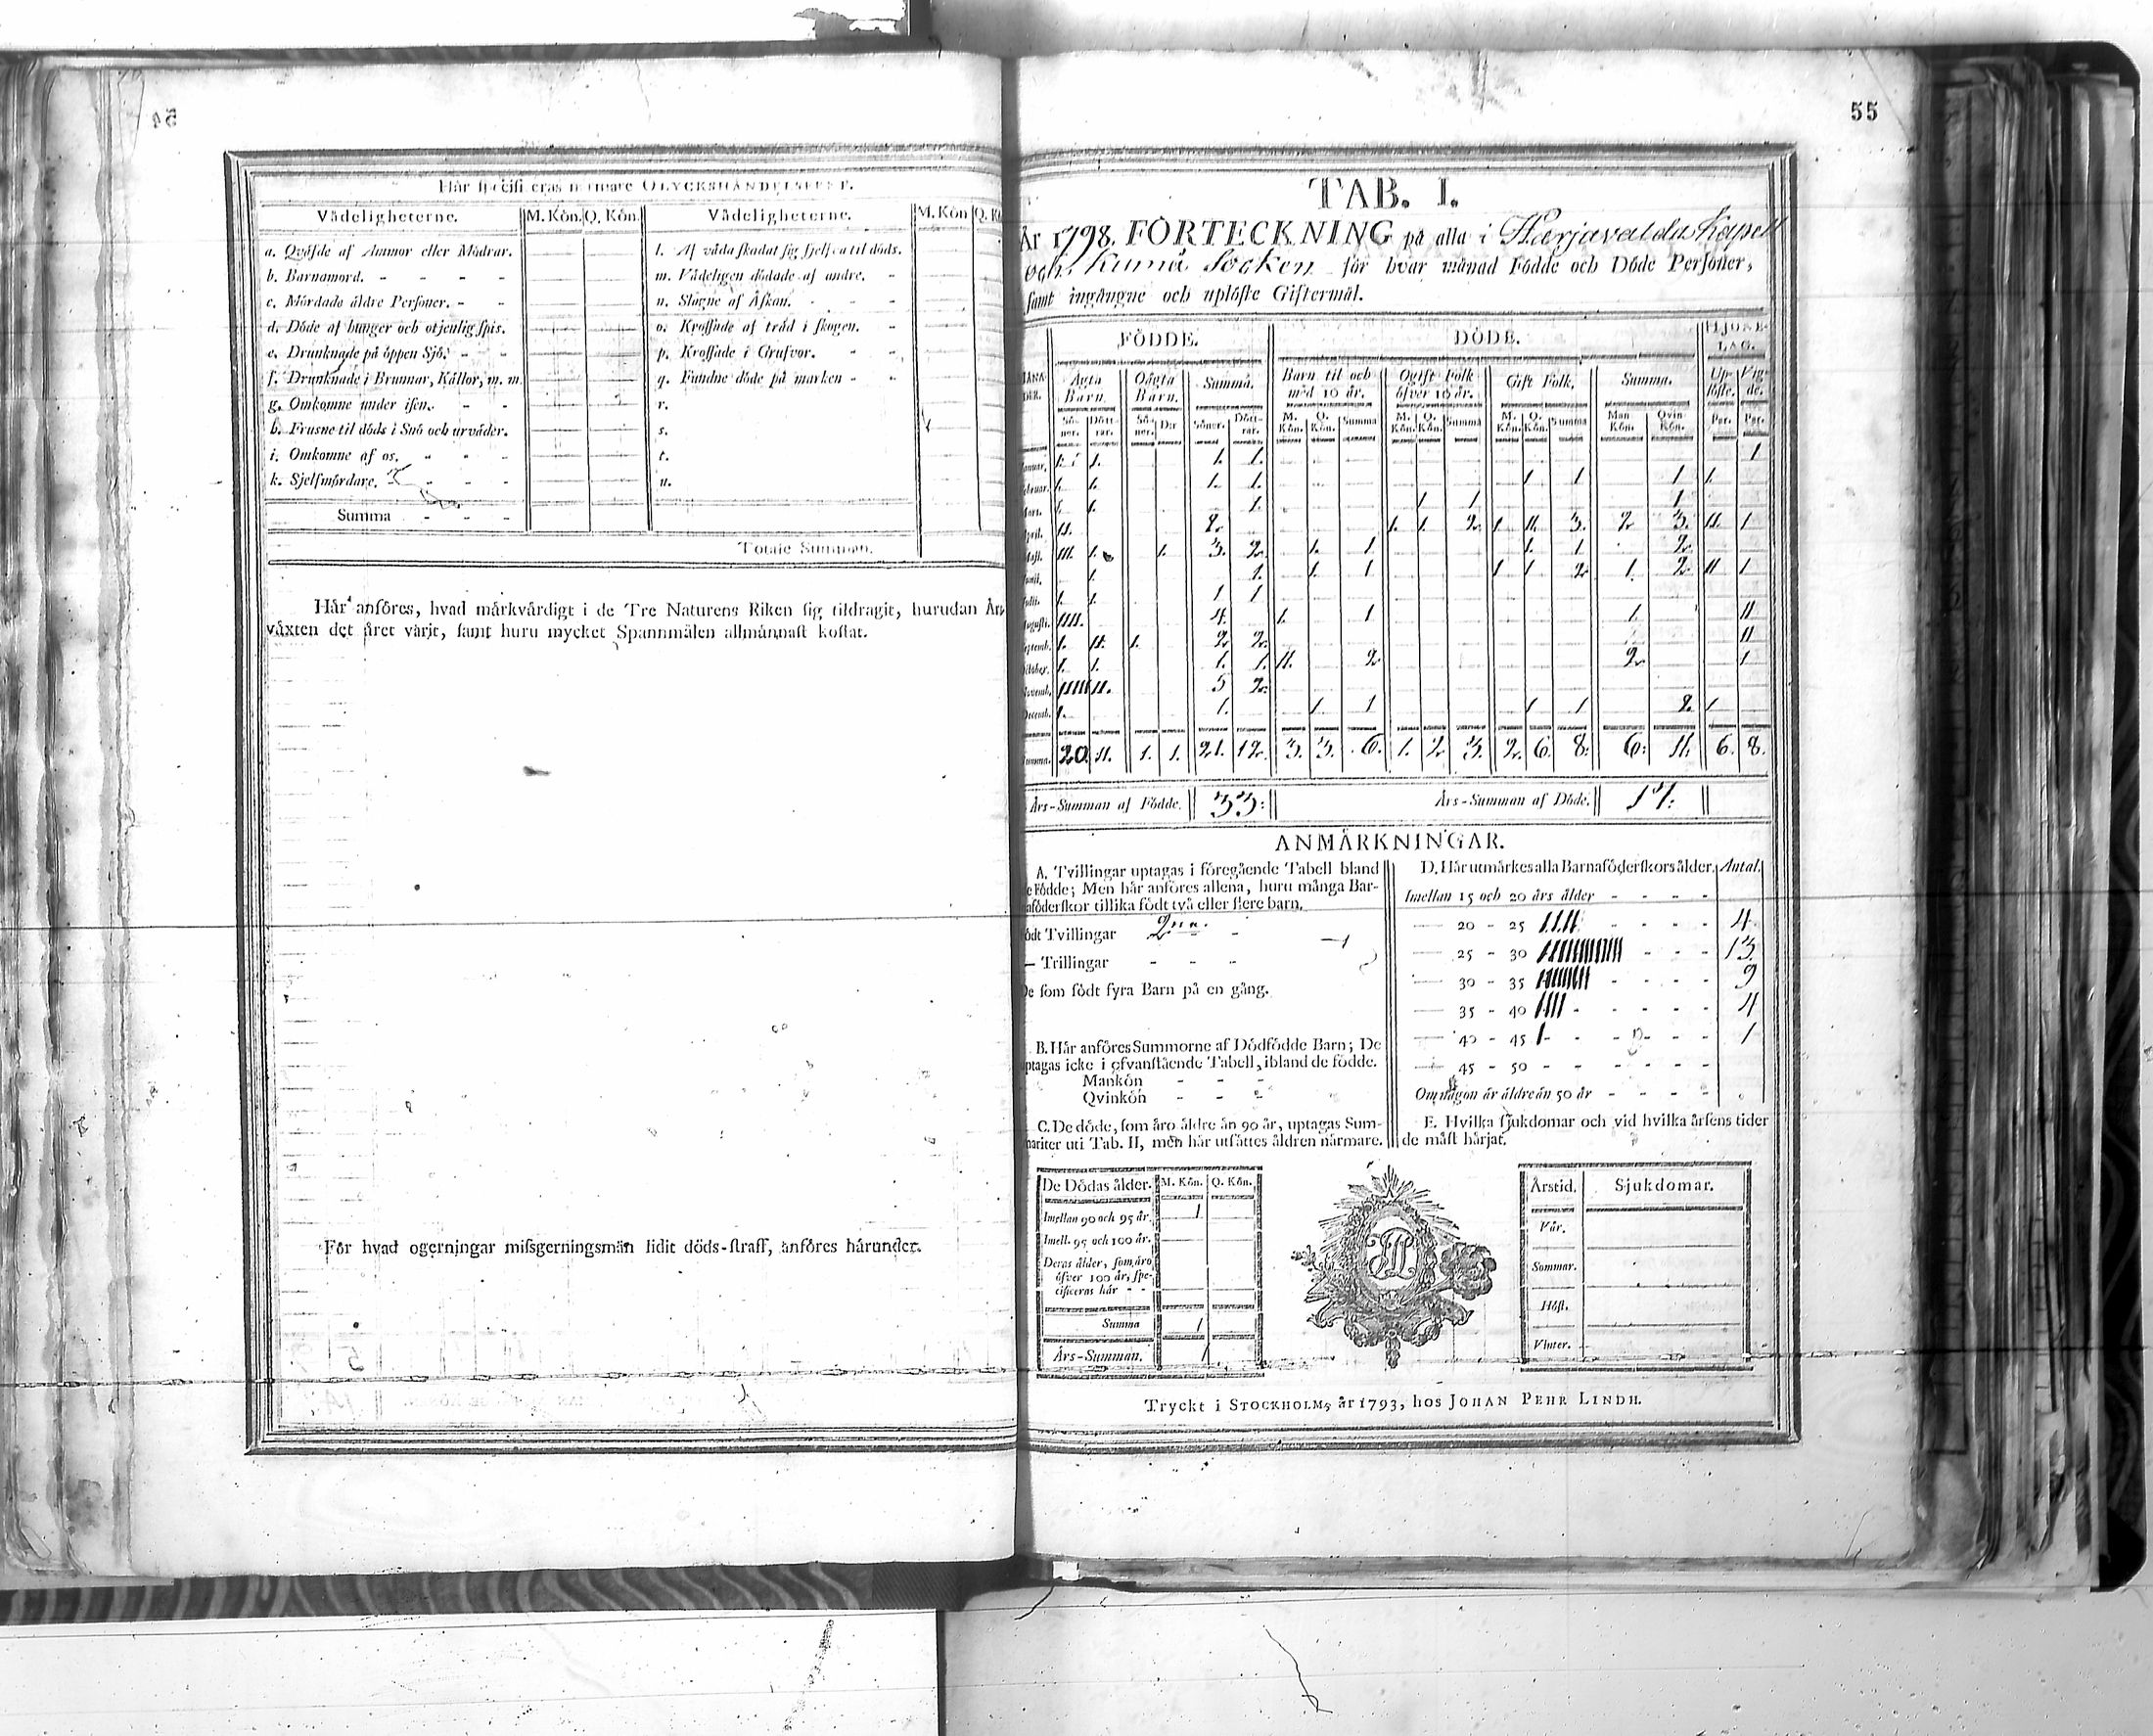 54
Här specificeras närmare OLYCKSHÄNDELSERNE.
Vådeligheterne. M. Kön. Q. Kön. Vådeligheterne. M. Kön Q. Kö
a. Qväfde af Ammor eller Mödrar. l. Af våda skadat sig sjelfva til döds.
b. Barnamord. - - - - m. Vådeligen dödade af andre. -
c. Mördade äldre Personer. - - n. Slagne af Åskan. - - -
d. Döde af hunger och otjenlig spis. o. Krossade af träd i skogen. -
e. Drunknade på öppen Sjö. - - p. Krossade i Grufvor. - -
f. Drunknade i Brunnar, Källor, m. m. q. Fundne döde på marken - -
g. Omkomne under isen. - - r.
h. Frusne til döds i Snö och urväder. s.
i. Omkomne af os. - - - t.
k. Sjelfmördare. - - - u.
Summa - - -
Totale Summan.
Här anföres, hvad märkvärdigt i de Tre Naturens Riken sig tildragit, hurudan Års-
växten det året varit, samt huru mycket Spannmålen allmännast kostat.
För hvad ogerningar missgerningsmän lidit döds-straff, anföres härunder.
55
TAB. I.
År 1798. FÖRTECKNING på alla i Harjavalda Kapell
och Kumå Socken för hvar månad Födde och Döde Personer,
samt ingångne och uplöste Giftermål.
FÖDDE. DÖDE. HJONE-LAG.
MÅNADER. Ägta Barn. Oägta Barn. Summa. Barn til och med 10 år. Ogift Folk öfver 10 år. Gift Folk. Summa. Uplöste. Vigde.
Söner. Döttrar. Söner. D:r Söner. Döttrar. M. Kön. Q. Kön. Summa M. Kön. Q. Kön. Summa M. Kön. Q. Kön. Summa Man Kön. Qvin Kön. Par. Par.
Januar. 1. 1. 1. 1. 1
Februar. 1. 1. 1. 1. 1 1 1 1.
Mart. 1. 1. 1. 1 1 1
April. II. 2. 1. 1. 2. 1 II. 3. 2. 3. II. 1
Maji. III. 1. 1. 3. 2. 1. 1 1. 1 2.
Junii. 1. 1. 1. 1 1 1 2. 1. 2. II 1
Julii. 1. 1. 1 1
Augusti. IIII. 4. 1. 1 1 II
Septemb. 1. II. 1. 2. 2. II
October. 1. 1. 1. 1. II. 2. 2. 1
Novemb. IIIII II. 5 2.
Decemb. 1. 1. 1. 1 1 1 2. 1
Summa. 20. 11. 1. 1. 21. 12. 3. 3. 6. 1. 2. 3. 2. 6. 8. 6. 11. 6. 8.
Års-Summan af Födde. 33: Års-Summan af Döde. 17:
ANMÄRKNINGAR.
A. Tvillingar uptagas i föregående Tabell bland
de Födde; Men här anföres allena, huru många Bar-
naföderskor tillika födt två eller flere barn.
Födt Tvillingar
— Trillingar - - -
De som födt fyra Barn på en gång.
B. Här anföres Summorne af Dödfödde Barn; De
uptagas icke i ofvanstående Tabell, ibland de födde.
Mankön - - -
Qvinkön - - -
C. De döde, som äro äldre än 90 år, uptagas Sum-
mariter uti Tab. II, men här utsättes åldren närmare.
D. Här utmärkes alla Barnaföderskors ålder. Antal.
Imellan 15 och 20 års ålder - - - -
— 20 - 25 IIII - - - - 4.
— 25 - 30 IIIIIIIIIIIII - - - 13.
— 30 - 35 IIIIIIIII - - - - 9
— 35 - 40 IIII - - - - - 4
— 40 - 45 I - - - - - 1
— 45 - 50 - - - - - -
Om någon är äldre än 50 år - - - -
E. Hvilka sjukdomar och vid hvilka årsens tider
de mäst härjat.
De Dödas ålder. M. Kön. Q. Kön.
Imellan 90 och 95 år. 1
Imell. 95 och 100 år.
Deras ålder, som äro
öfver 100 år, spe-
cificeras här - -
Summa 1
Års-Summan. 1
Årstid. Sjukdomar.
Vår.
Sommar.
Höst.
Vinter.
Tryckt i STOCKHOLM, år 1793, hos JOHAN PEHR LINDH.